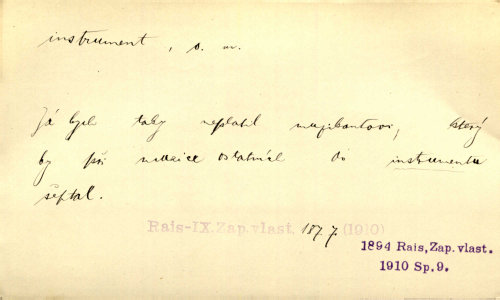 instrument, s. m.
Já bych taky neplatil muzikantovi, který
by při muzice ostatních do instrumentu
šeptal.
Rais-IX. Zap. vlast. 187.7. (1910)
1894 Rais, Zap. vlast.
1910 Sp. 9.